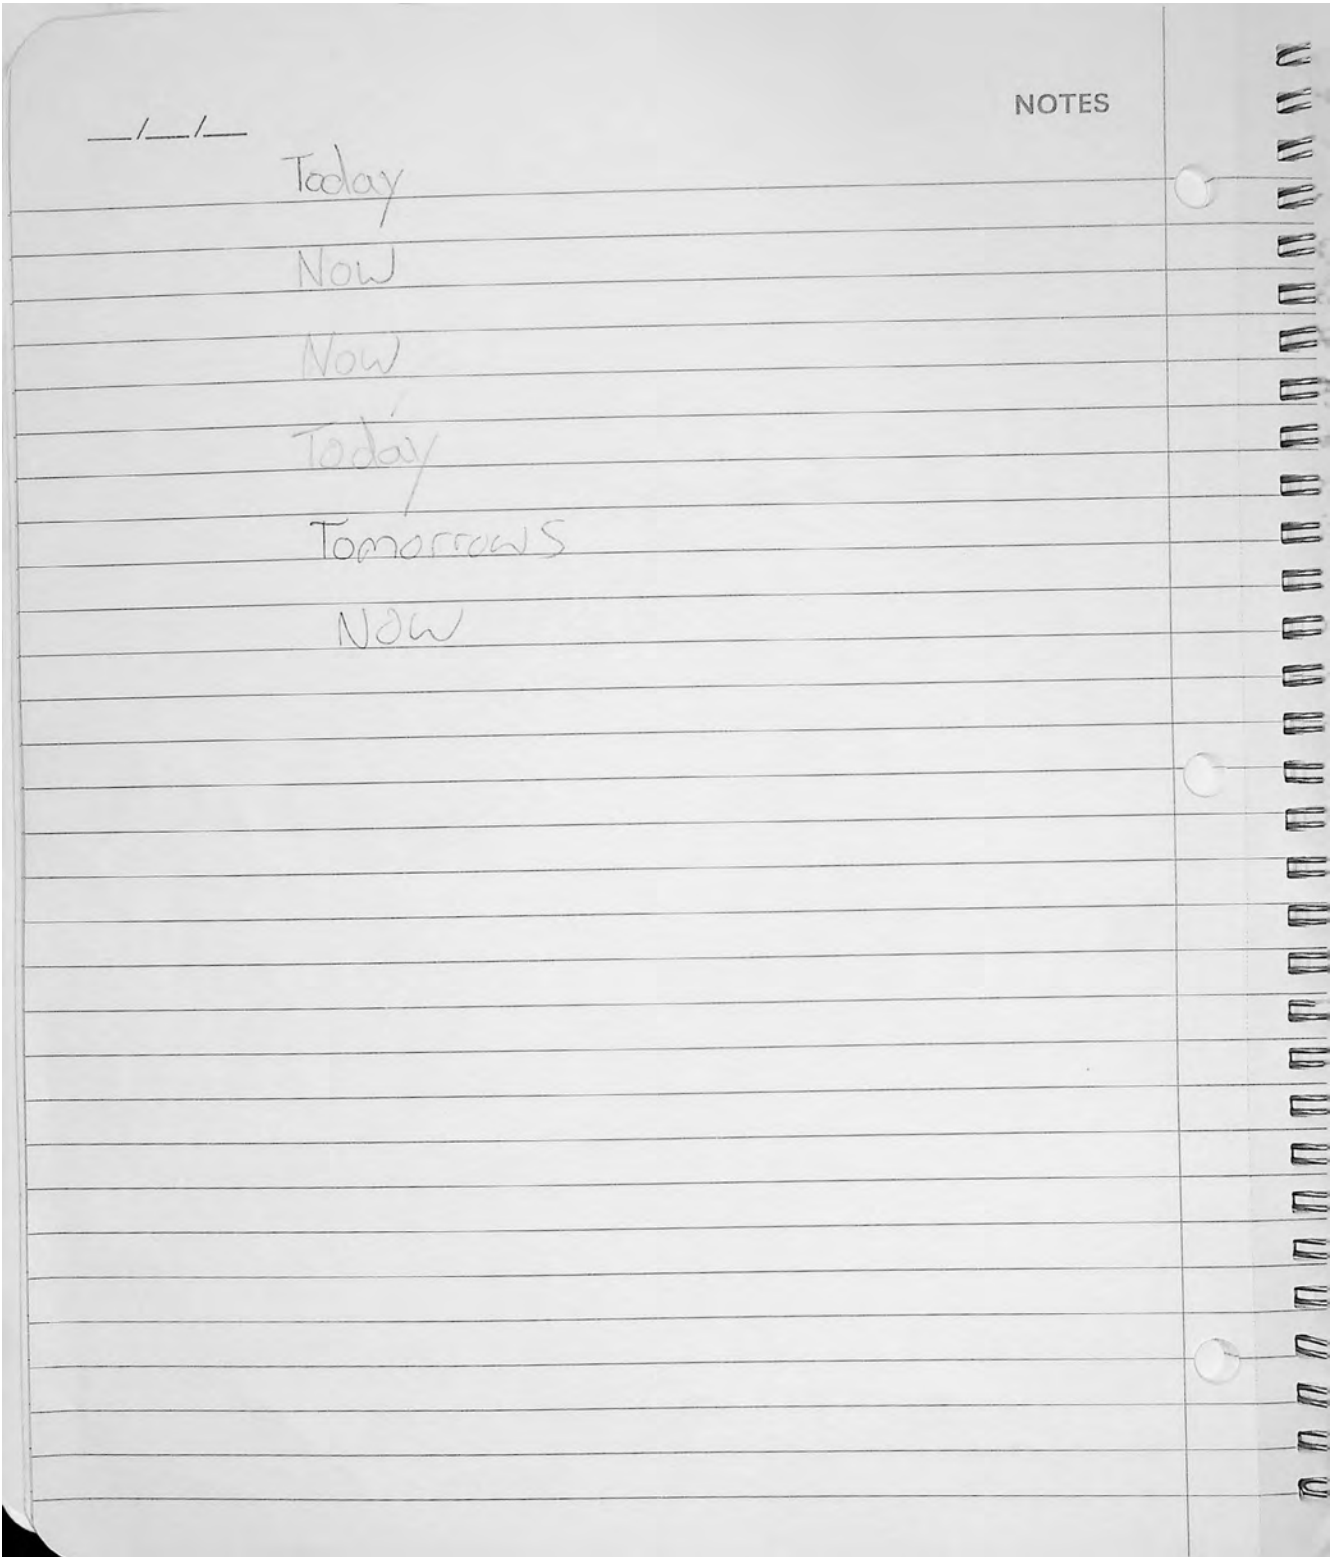 NOTES
__/__/__
Today
Now
Now
Today
Tomorrows
Now